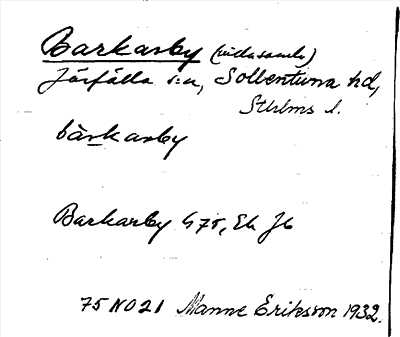 Barkarby (villasamh.)
Järfälla s:n, Sollentuna hd,
Sthlms l.
bàrkarby
Barkarby G 75, Ek Jb
75 NO21 Manne Eriksson 1932.